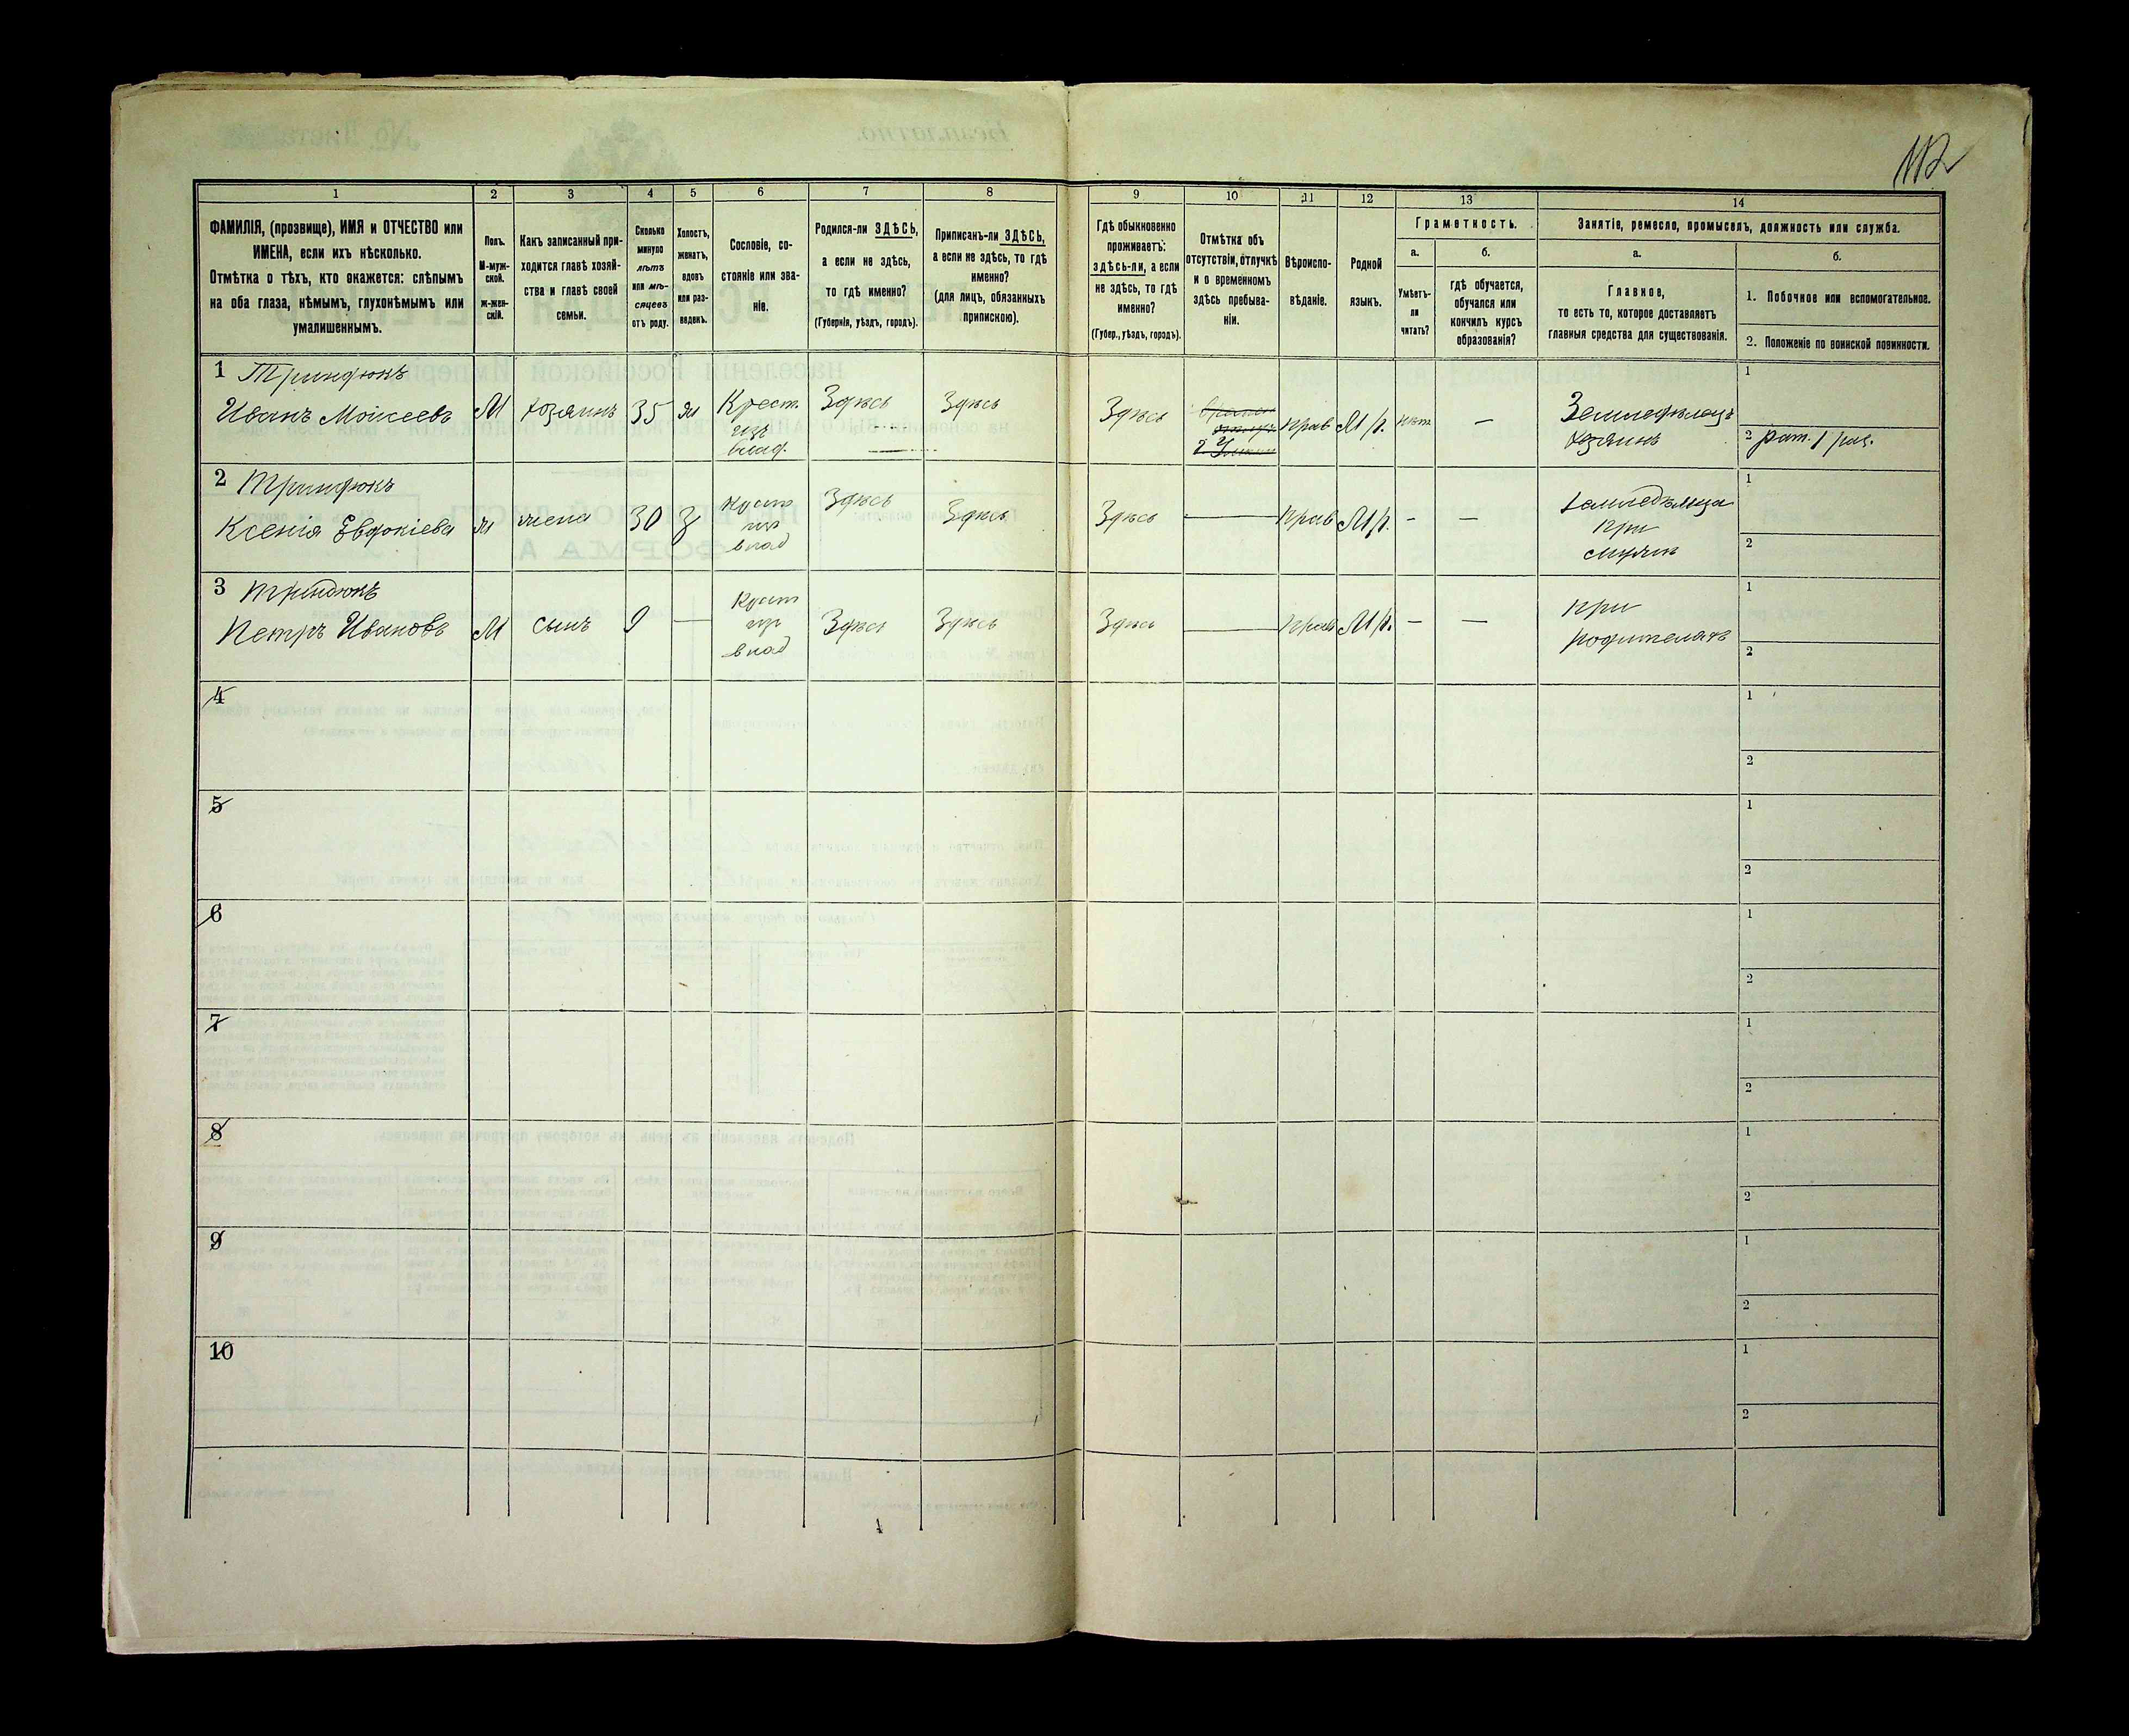 112
1
2
3
4
5
6
7
8
9
10
11
12
13
14
ФАМИЛІЯ, (прозвище), ИМЯ и ОТЧЕСТВО или
ИМЕНА, если ихъ нѣсколько.
Отмѣтка о тѣхъ, кто окажется: слѣпымъ
на оба глаза, нѣмымъ, глухонѣмымъ или
умалишеннымъ.
Полъ.
М-муж-
ской.
ж-жен-
скій.
Какъ записанный при-
ходится главѣ хозяй-
ства и главѣ своей
семьи.
Сколько
минуло
лѣтъ
или мѣ-
сяцевъ
отъ роду.
Холостъ,
женатъ,
вдовъ
или раз-
веденъ.
Сословіе, со-
стояніе или зва-
ніе.
Родился-ли ЗДѢСЬ,
а если не здѣсь,
то гдѣ именно?
(Губернія, уѣздъ, городъ).
Приписанъ-ли ЗДѢСЬ,
а если не здѣсь, то гдѣ
именно?
(для лицъ, обязанныхъ
припискою).
Гдѣ обыкновенно
проживаетъ:
здѣсь-ли, а если
не здѣсь, то гдѣ
именно?
(Губер., уѣздъ, городъ).
Отмѣтка объ
отсутствіи, отлучкѣ
и о временномъ
здѣсь пребыва-
ніи.
Вѣроиспо-
вѣданіе.
Родной
языкъ.
Грамотность.
а.
Умѣетъ-
ли
читать?
б.
гдѣ обучается,
обучался или
кончилъ курсъ
образованія?
Занятіе, ремесло, промыселъ, должность или служба.
а.
Главное,
то есть то, которое доставляетъ
главныя средства для существованія.
б.
1. Побочное или вспомогательное.
2. Положеніе по воинской повинности.
1 Триндюкъ
Иванъ Моисеевъ
М
хозяинъ
35
ж
Крест.
изъ
влад.
Здѣсь
Здѣсь
Здѣсь
прав
М р.
нѣт
—
Земледѣлецъ
хозяинъ
1
2 рат. 1 раз.
2 Триндюкъ
Ксенія Евдокіева
ж
жена
30
З
Крест
изр
влад
Здѣсь
Здѣсь
Здѣсь
—
прав
М р.
—
—
при
1
2
3 Триндюкъ
Петръ Ивановъ
М
сынъ
9
—
Крест
изр
влад
Здѣсь
Здѣсь
Здѣсь
—
прав
М р.
—
—
при
родителяхъ
1
2
4
1
2
5
1
2
6
1
2
7
1
2
8
1
2
9
1
2
10
1
2